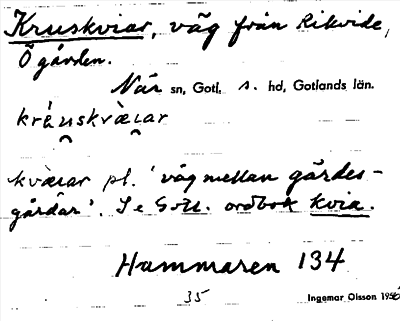 Kruskviar, väg från Rikvide,
Ö gården.
När sn, Gotl. s. hd, Gotlands län.
kvàiar pl. 'väg mellan gärdes-
gårdar'. Se Gotl. ordbok kvia.
Hammaren 134
35 Ingemar Olsson 1956